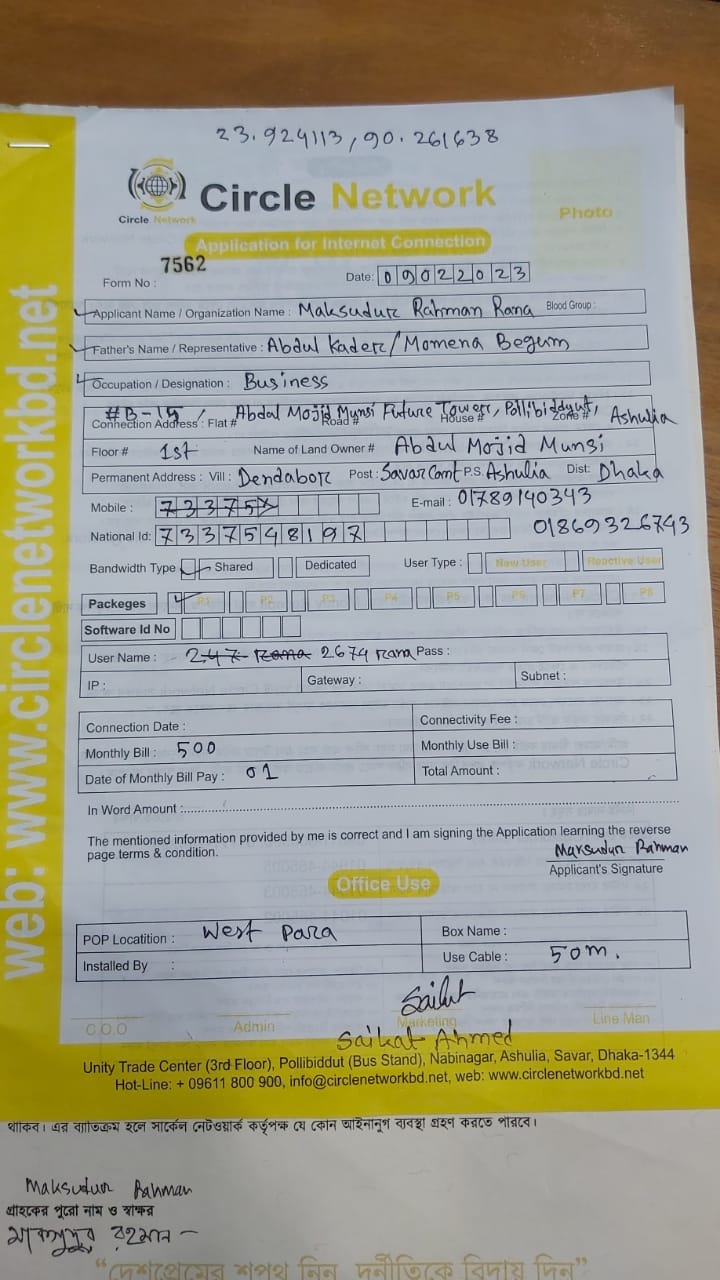 23.924113, 90.261638
Circle Network
Circle Network
Photo
Application for Internet Connection
Form No : 7562
Date: 09022023
Applicant Name / Organization Name : Maksudur Rahman Rana Blood Group :
Father's Name / Representative : Abdul Kader/Momena Begum
Occupation / Designation : Business
Connection Address : Flat # #B-15/ Abdal Mojid Munsi Future Tower, Pollibiddyut, Ashulia Road # House # Zone #
Floor # 1st Name of Land Owner # Abdul Mojid Munsi
Permanent Address : Vill : Dendabor Post : Savar Cant P.S. Ashulia Dist: Dhaka
Mobile : 73375 E-mail : 01789140343
National Id: 7337548197 01869326743
Bandwidth Type Shared Dedicated User Type : New User Reactive User
Packeges P1 P2 P3 P4 P5 P6 P7 P8
Software Id No
User Name : 247 Rana 2674 Rana Pass :
IP : Gateway : Subnet :
Connection Date : Connectivity Fee :
Monthly Bill : 500 Monthly Use Bill :
Date of Monthly Bill Pay : 01 Total Amount :
In Word Amount :
The mentioned information provided by me is correct and I am signing the Application learning the reverse
page terms & condition.
Maksudur Rahman
Applicant's Signature
Office Use
POP Locatition : West Para Box Name :
Installed By : Use Cable : 50m.
Saikat
C.O.O Admin Marketing Line Man
Saikat Ahmed
Unity Trade Center (3rd Floor), Pollibiddut (Bus Stand), Nabinagar, Ashulia, Savar, Dhaka-1344
Hot-Line: + 09611 800 900, info@circlenetworkbd.net, web: www.circlenetworkbd.net
web: www.circlenetworkbd.net
থাকিব। এর ব্যতিক্রম হলে সার্কেল নেটওয়ার্ক কর্তৃপক্ষ যে কোন আইনানুগ ব্যবস্থা গ্রহণ করতে পারবে।
Maksudur Rahman
গ্রাহকের পুরো নাম ও স্বাক্ষর
মাকসুদুর রহমান
“দেশপ্রেমের শপথ নিন, দুর্নীতিকে বিদায় দিন”